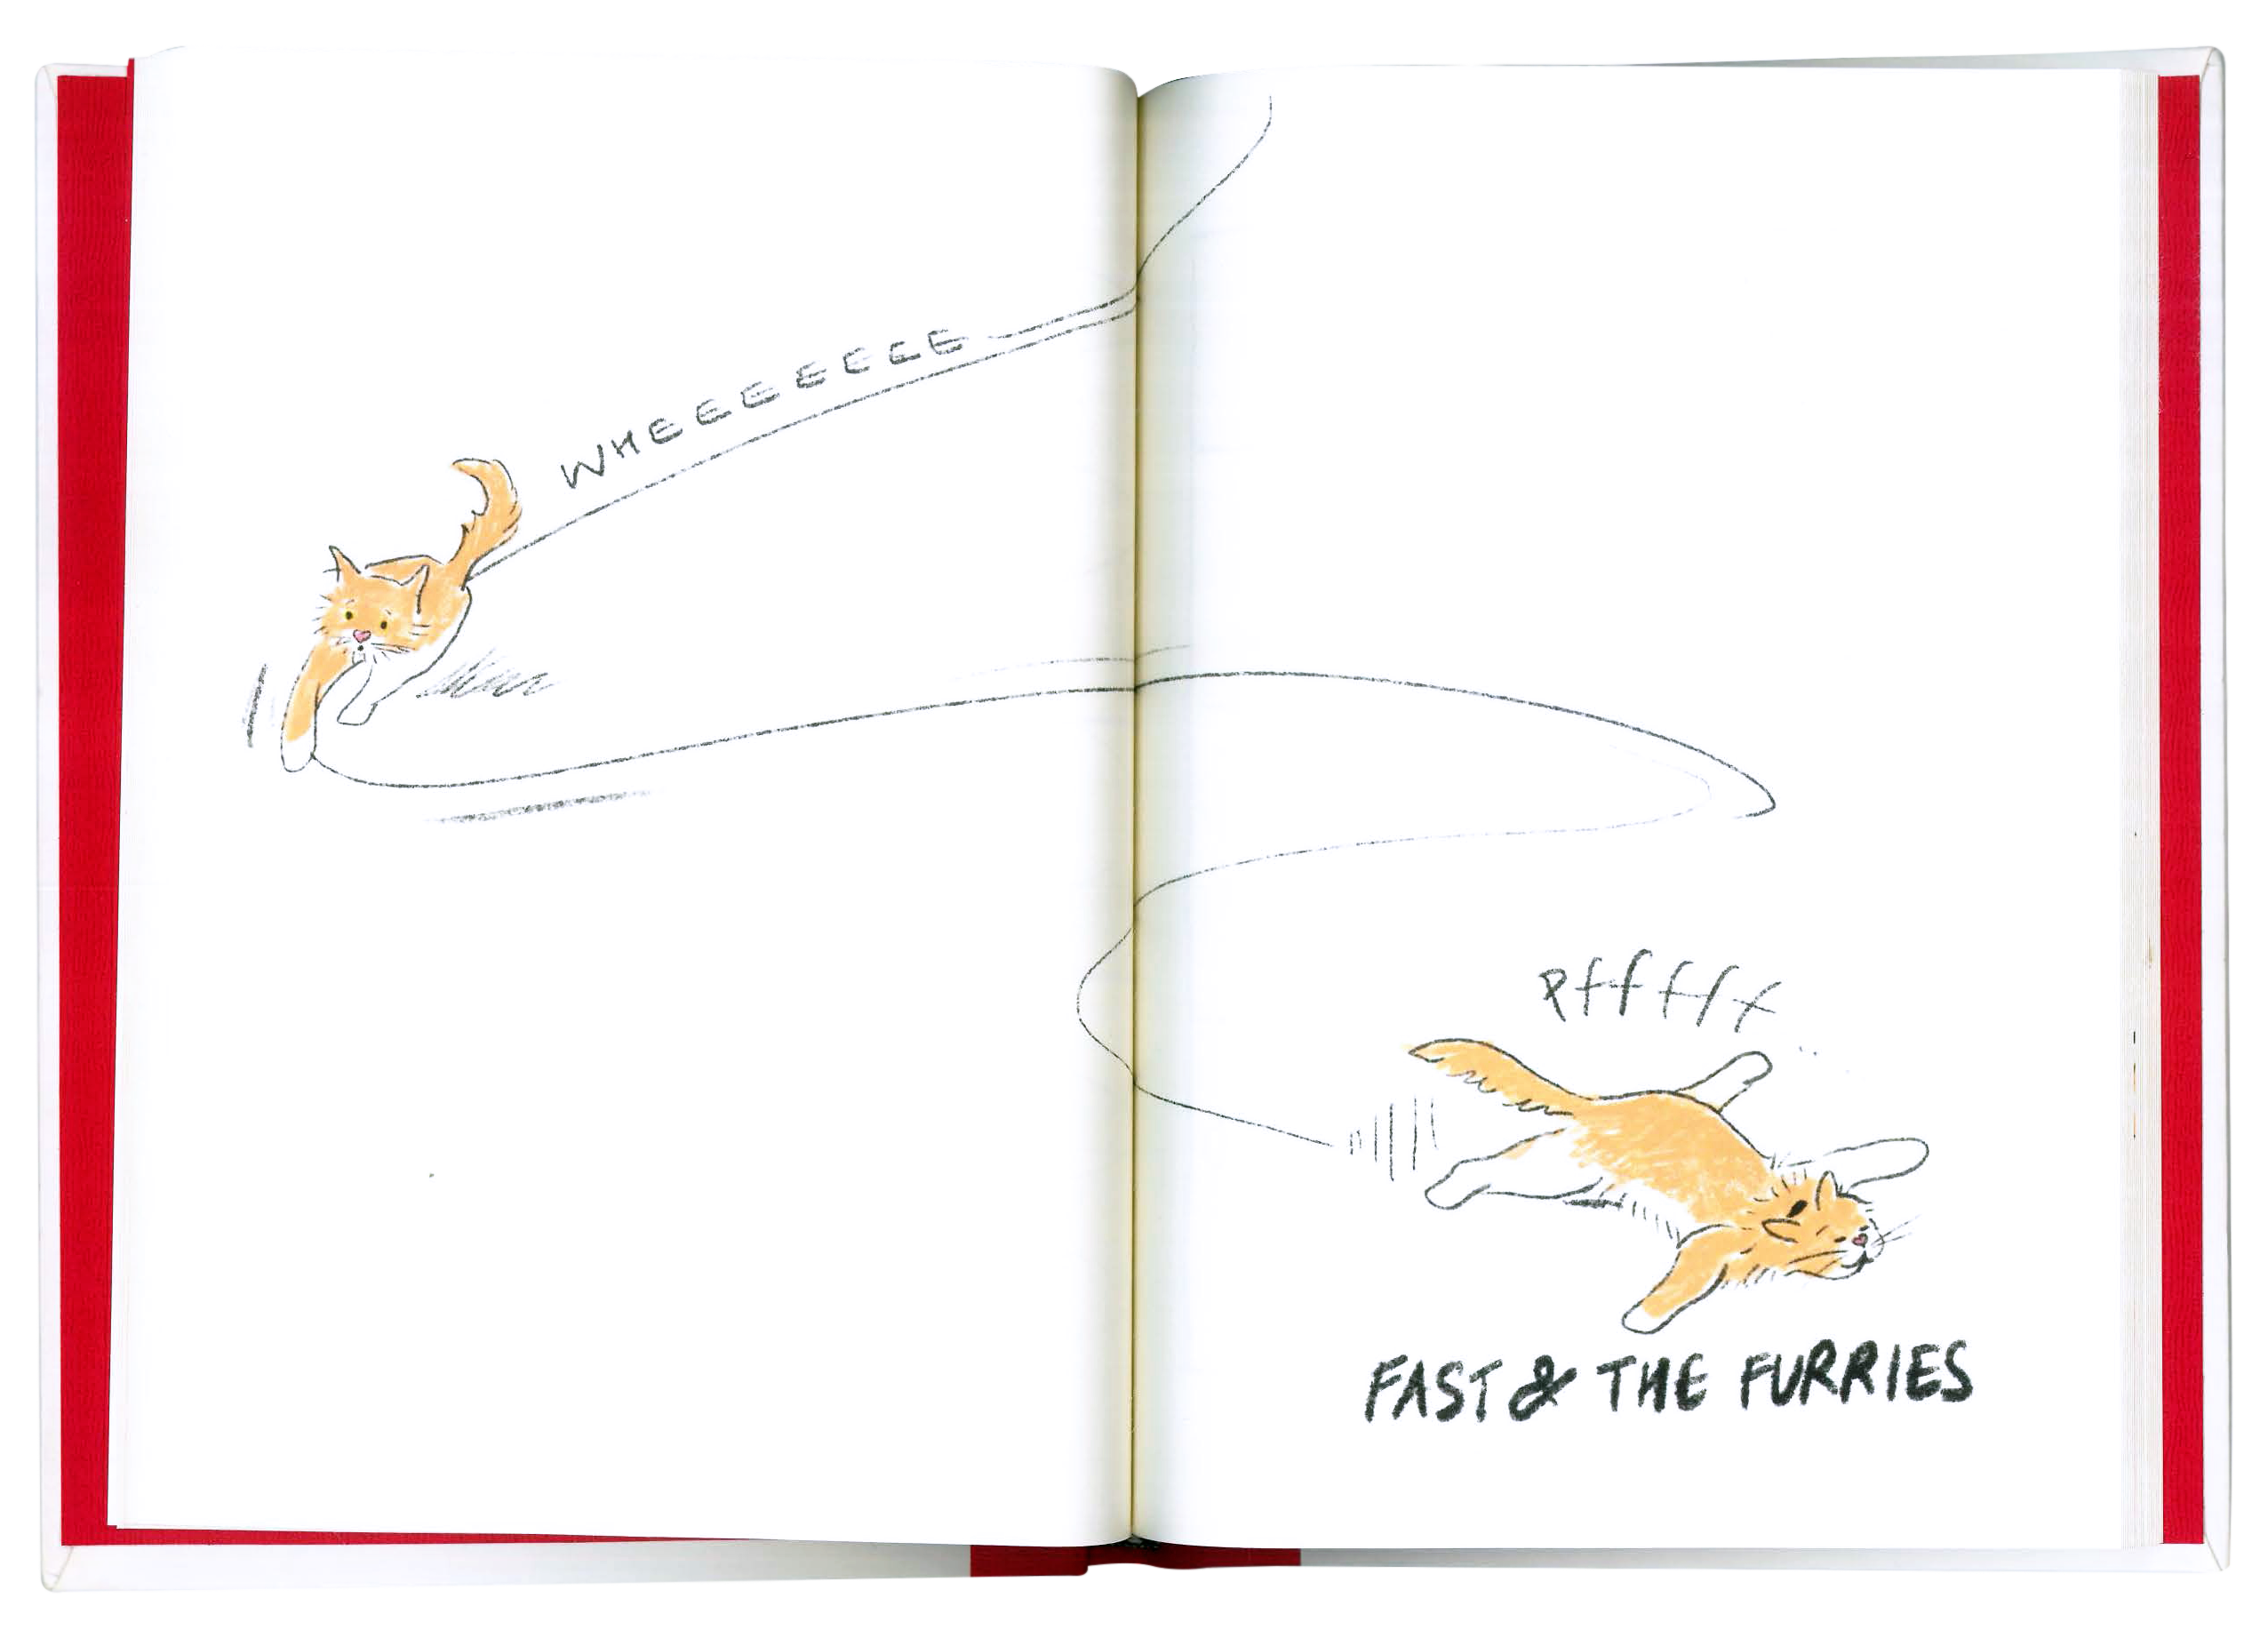 WHEEEEEEE
Pffffff
FAST & THE FURRIES